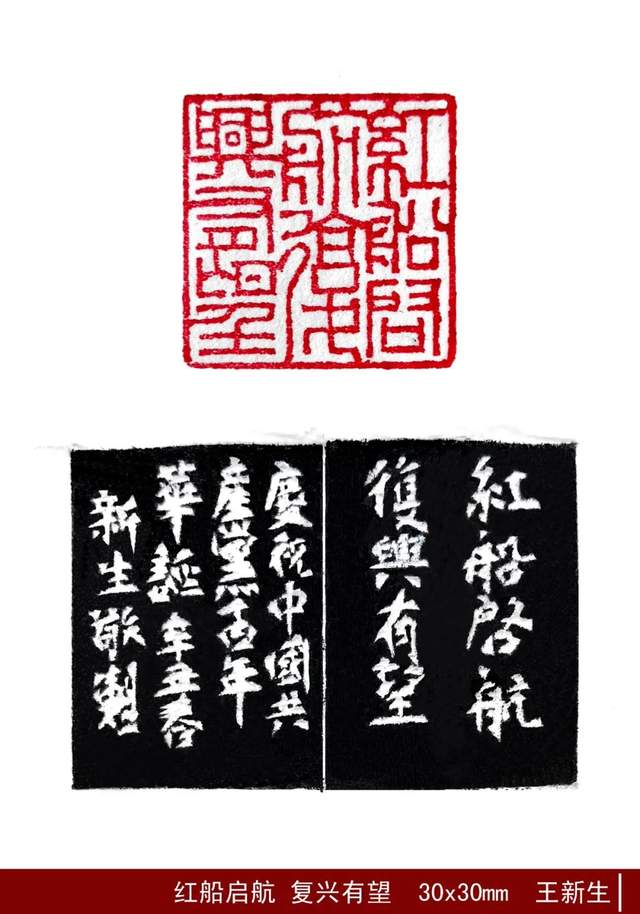 紅船启
航復
興有望
紅船啓航
復興有望
慶祝中國共
產黨百年
華誕辛丑春
新生敬製
红船启航 复兴有望 30x30mm 王新生